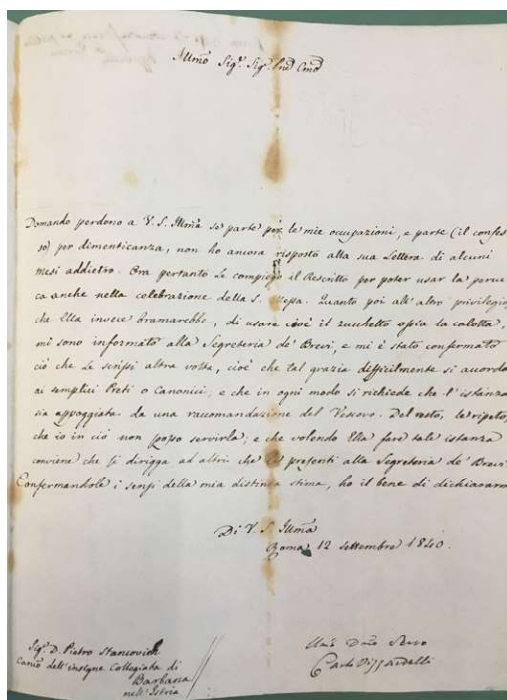 Illmo Sigr. Sigr. Pne Cmo
Domando perdono a V. S. Illma se parte per le mie occupazioni, e parte (il confes
so) per dimenticanza, non ho ancora risposto alla sua Lettera di alcuni
mesi addietro. Ora pertanto Le compiego il Rescritto per poter usar la perruc
ca anche nella celebrazione della S. Messa. Quanto poi all'altro privilegio
che Ella invece bramarebbe, di usare cioè il zucchetto ossia la calotta,
mi sono informato alla Segreteria de' Brevi, e mi è stato confermato
ciò che Le scrissi altra volta, cioè che tal grazia difficilmente si accorda
ai semplici Preti o Canonici, e che in ogni modo si richiede che l'istanza
sia appoggiata da una raccomandazione del Vescovo. Del resto, le ripeto,
che io in ciò non posso servirla; e che volendo Ella fare tale istanza
conviene che si diriga ad altri che la presenti alla Segreteria de' Brevi.
Confermandole i sensi della mia distinta stima, ho il bene di dichiararmi
Di V. S. Illma
Roma, 12 settembre 1840.
Sigr. D. Pietro Stancovich
Canco. dell'insigne Collegiata di
Barbana
nell'Istria
Dmo Servo
Carlo Vizzardelli